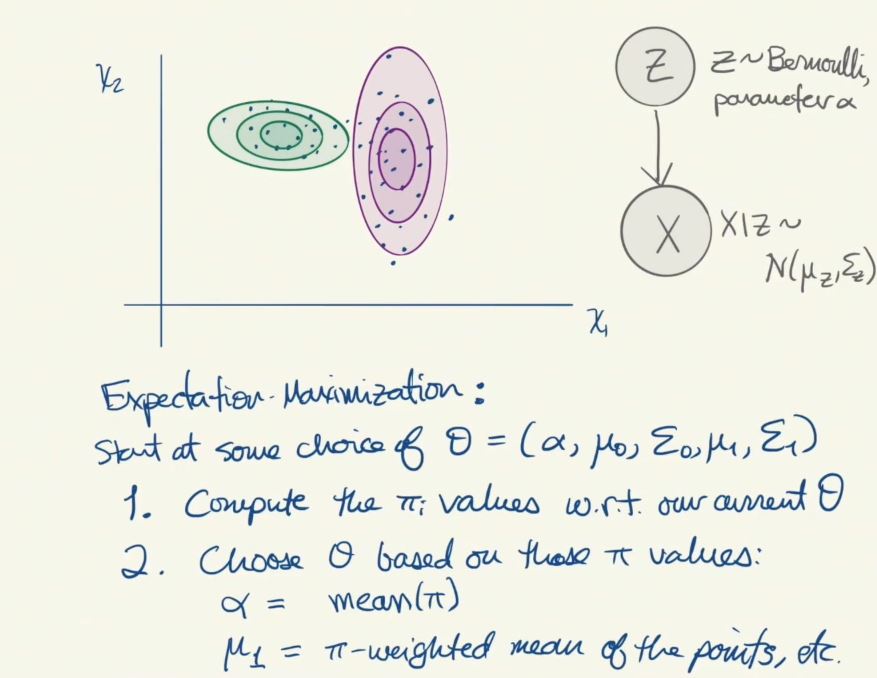 x₂
Z
Z ~ Bernoulli,
parameter α
X
X|Z ~
N(μ_Z, Σ_Z)
x₁
Expectation-Maximization:
Start at some choice of θ = (α, μ₀, Σ₀, μ₁, Σ₁)
1. Compute the πᵢ values w.r.t. our current θ
2. Choose θ based on those π values:
α = mean(π)
μ₁ = π-weighted mean of the points, etc.